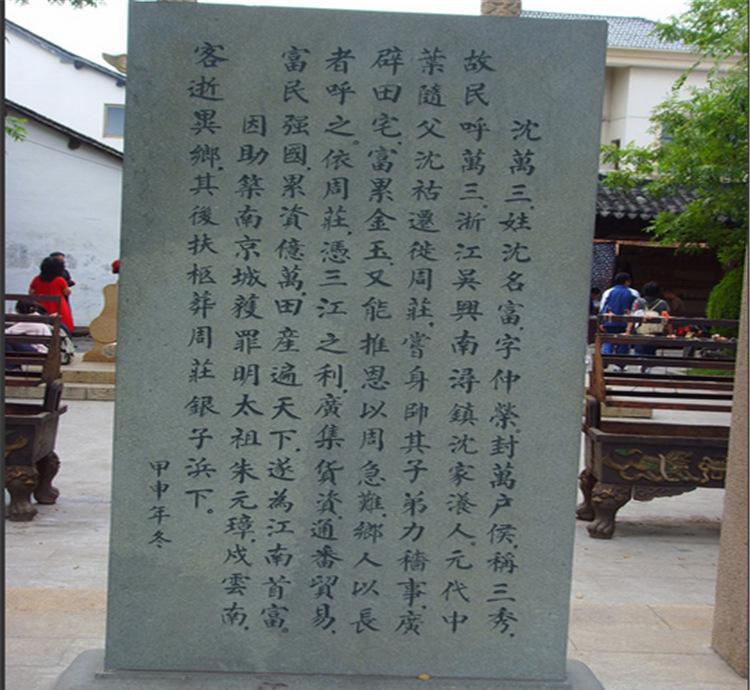 沈萬三,姓沈名富,字仲榮。封萬户侯,稱三秀,
故民呼萬三,浙江吳興南潯鎮沈家漾人。元代中
葉隨父沈祜遷徙周莊,嘗身帥其子弟力穡事,廣
辟田宅,富累金玉,又能推恩以周急難,鄉人以長
者呼之。依周莊,憑三江之利,廣集貨資,通番貿易,
富民强國,累資億萬,田産遍天下,遂為江南首富。
因助築南京城獲罪明太祖朱元璋,戍雲南,
客逝異鄉,其後扶柩葬周莊銀子浜下。
甲申年冬